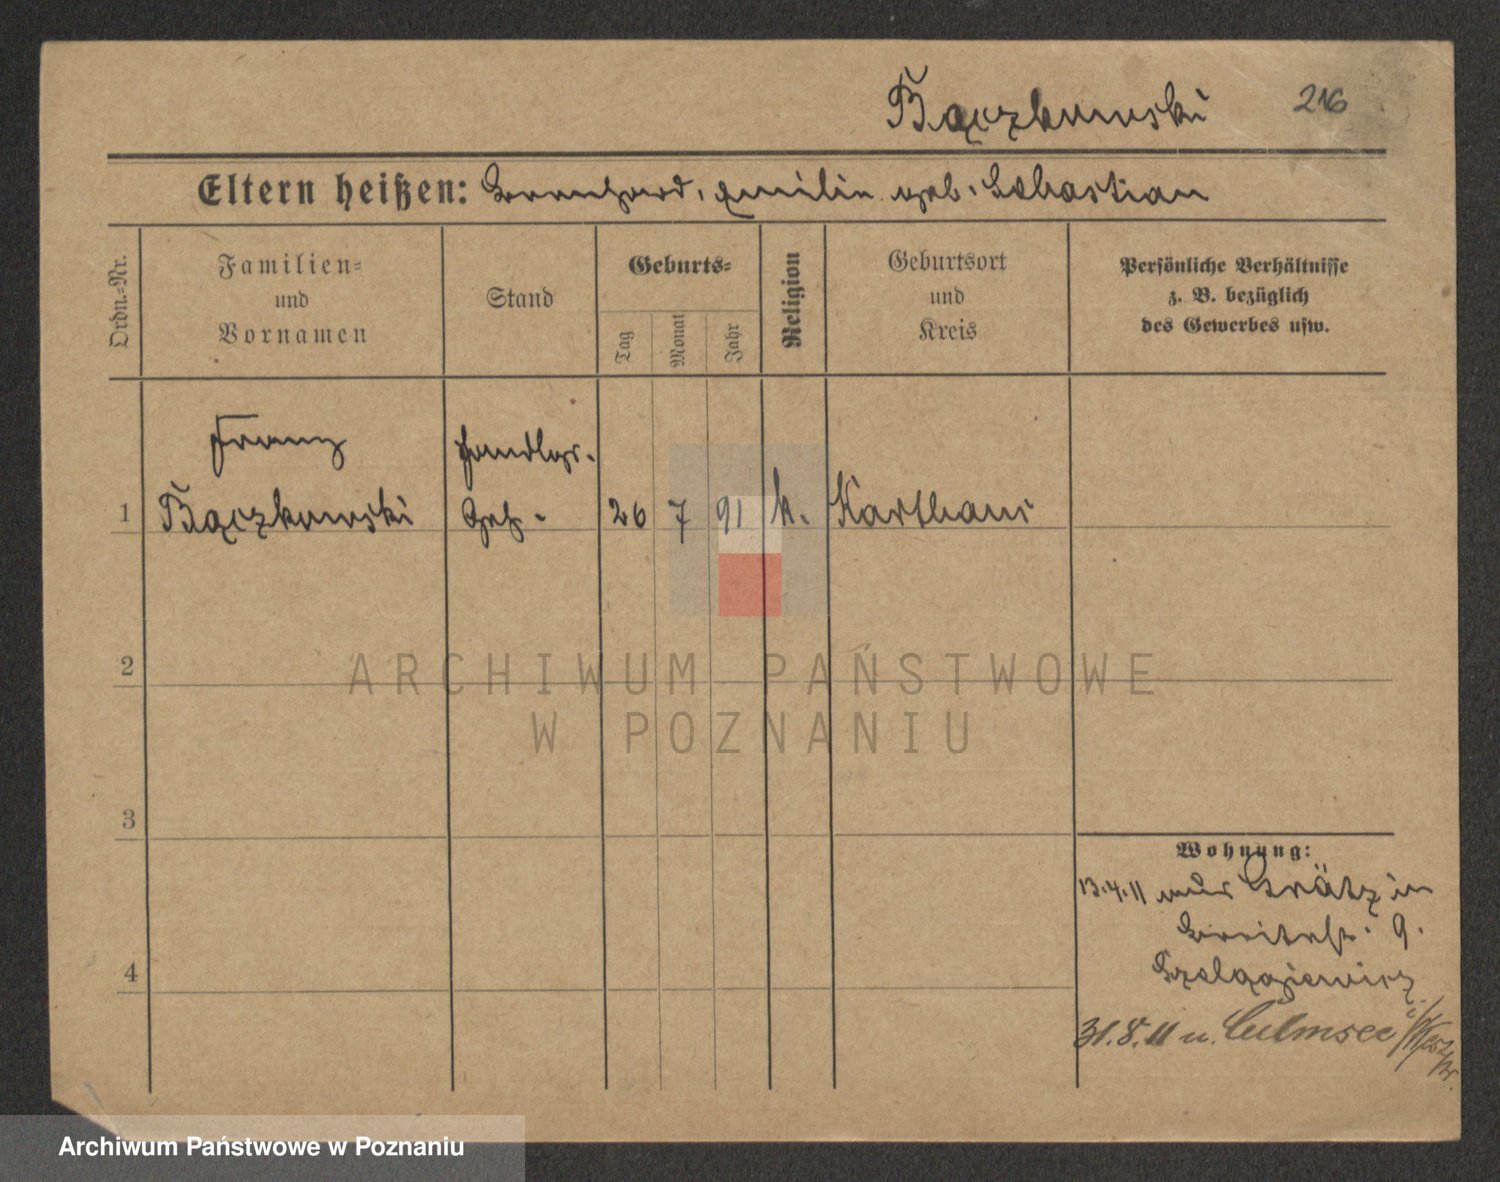 Bączkowski 216
Eltern heißen: Bernhard, Emilie geb. Sebastian
Ordn.-Nr.
Familien-
und
Vornamen
Stand
Geburts-
Tag
Monat
Jahr
Religion
Geburtsort
und
Kreis
Persönliche Verhältnisse
z. B. bezüglich
des Gewerbes usw.
Franz Handlgs.
1 Bączkowski Geh. 26 7 91 k. Karthaus
2
3
4
Wohnung:
13.4.11 aus Grätz in
Breitestr. 9.
31.8.11 n. Culmsee i/Westpr.
ARCHIWUM PAŃSTWOWE
W POZNANIU
Archiwum Państwowe w Poznaniu